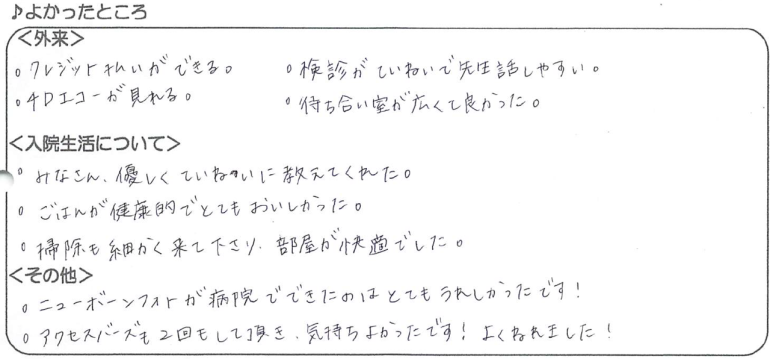 ♪よかったところ
<外来>
○クレジット払いができる。 ○検診がていねいで先生話しやすい。
○4Dエコーが見れる。 ○待ち合い室が広くて良かった。
<入院生活について>
○みなさん、優しくていねいに教えてくれた。
○ごはんが健康的でとてもおいしかった。
○掃除も細かく来て下さり、部屋が快適でした。
<その他>
○ニューボーンフォトが病院でできたのはとてもうれしかったです!
○アクセスバーズも2回もして頂き、気持ちよかったです!よくねれました!